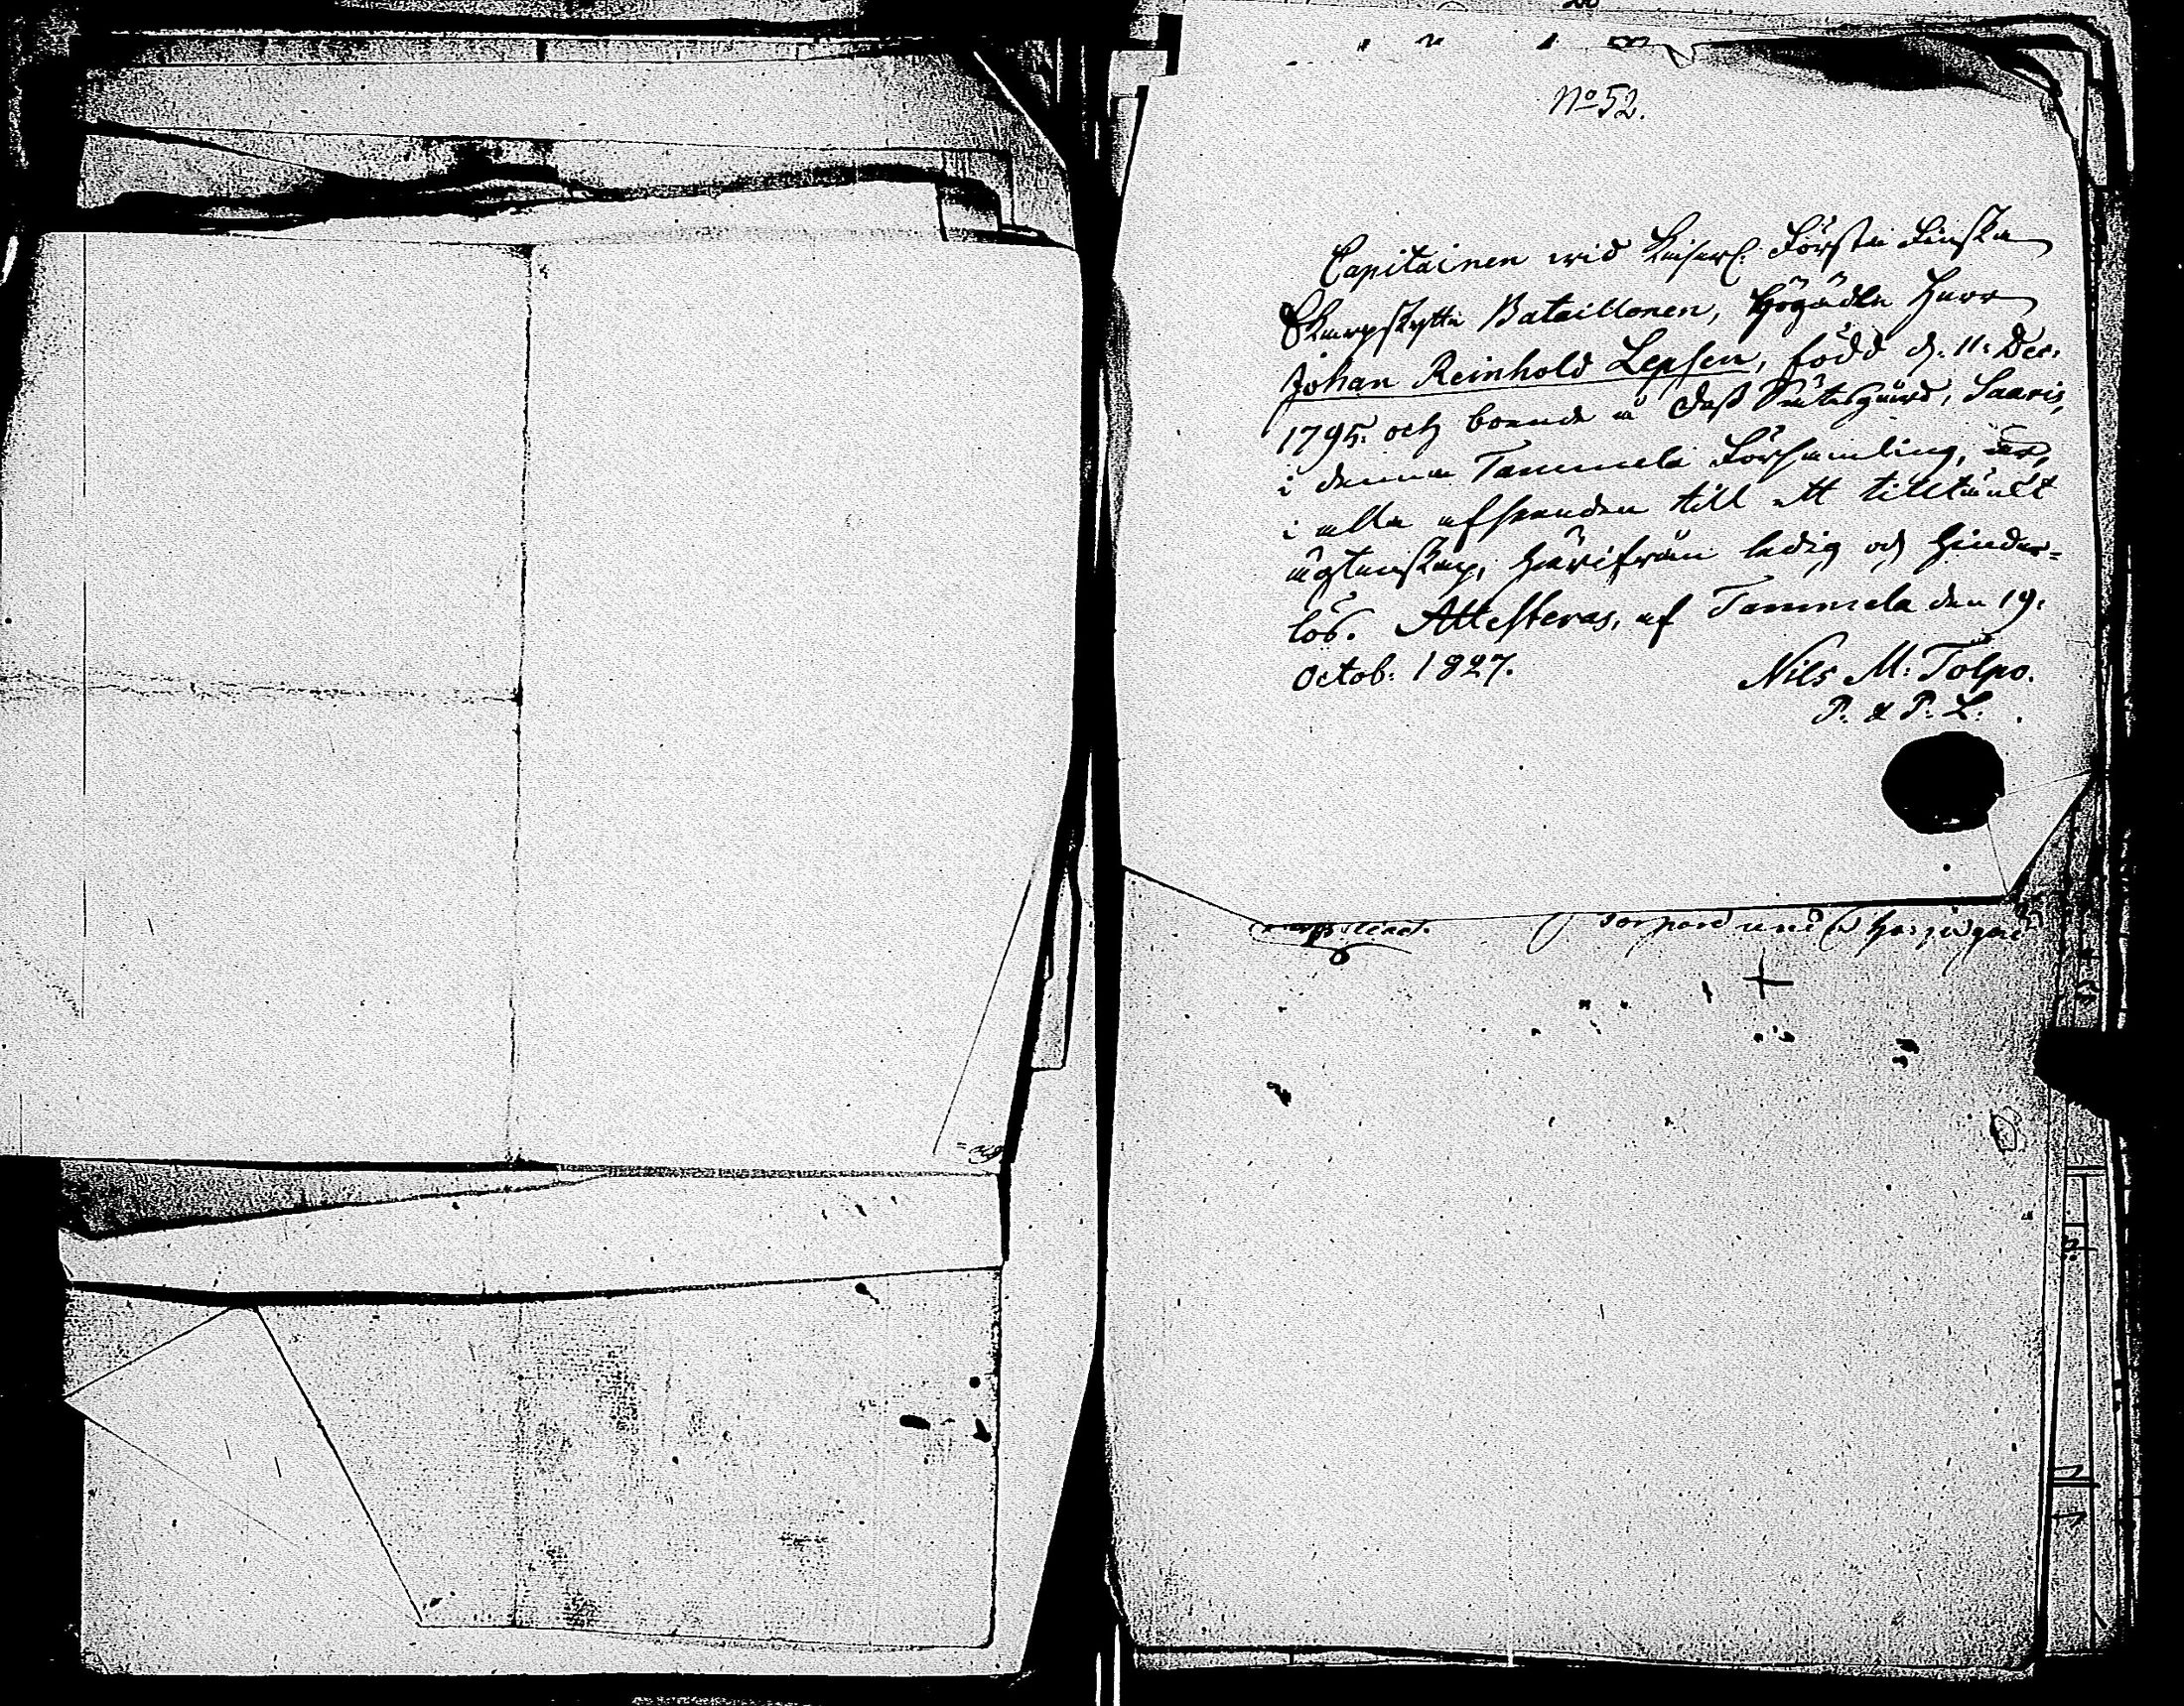 No 52.
Capitainen wid Keiserl. Första Finska
Skarpskytte Bataillonen, Högädle Herr
Johan Reinhold Lepsen, född d. 11. Dec.
1795. och boende å dess Sätesgård, Saaris,
i denna Tammela Församling, är,
i alla afseenden till ett tilltänkt
ägtenskap, härifrån ledig och hinder-
lös. Attesteras, af Tammela den 19.
Octob. 1827.
Nils M. Tolpo.
P. & P. L.